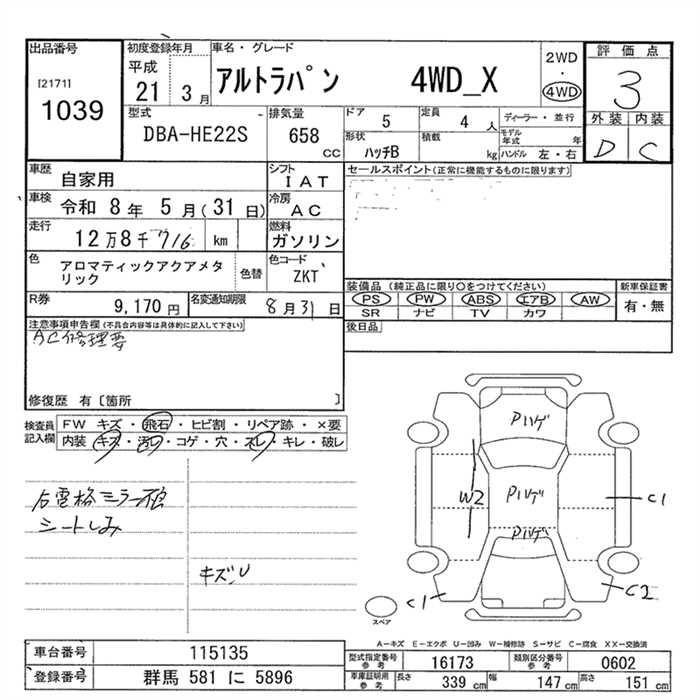 出品番号
[2171]
1039
初度登録年月
平成
21 3 月
車名・グレード
アルトラパン 4WD_X
2WD
・
4WD
評価点
3
外装 内装
D C
型式
DBA-HE22S
排気量
658
CC
ドア 5
定員 4 人
形状 ハッチB
積載 kg
ディーラー・並行
モデル年式 年
ハンドル 左・右
車歴
自家用
シフト
IAT
車検
令和 8年 5月(31日)
冷房
AC
走行
12万8千716 km
燃料
ガソリン
色
アロマティックアクアメタ
リック
色替
色コード
ZKT
R券
9,170 円
名変通知期限
8月31日
セールスポイント(正常に機能するものに限ります)
装備品 (純正品に限り○をつけてください)
PS PW ABS エアB AW
SR ナビ TV カワ
新車保証書
有・無
後日品
注意事項申告欄(不具合内容等は具体的に記入して下さい)
AC修理要
修復歴 有〔箇所 〕
検査員
記入欄
FW キズ・飛石・ヒビ割・リペア跡・×要
内装 キズ・汚レ・コゲ・穴・スレ・キレ・破レ
右電格ミラー
シートしみ
キズU
Pハゲ
Pハゲ
Pハゲ
W2
C1
C1
C2
スペア
A-キズ E-エクボ U-凹み W-補修跡 S-サビ C-腐食 XX-交換済
車台番号 115135
登録番号 群馬 581 に 5896
型式指定番号 参考 16173
類別区分番号 参考 0602
車庫証明用 参考
長さ 339 cm 幅 147 cm 高さ 151 cm